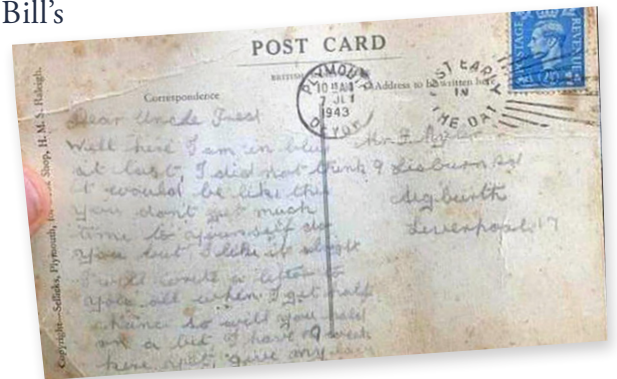 Bill's
POST CARD
Correspondence
Address to be written here
PLYMOUTH
10 AM
7 JL
1943
DEVON
POST EARLY
IN
THE DAY
POSTAGE REVENUE
Copyright—Sellicks, Plymouth, Shop, H. M. S. Raleigh.
Dear Uncle Fred
Well here I am in blue
at last, I did not think
it would be like this
you don't get much
time to yourself do
you but I like it alright
I will write a letter to
you all when I get half
chance so will you
me a bit I have 9 week
here yet, give my love
Mr F.
9 Lisburn Rd
Aigburth
Liverpool 17